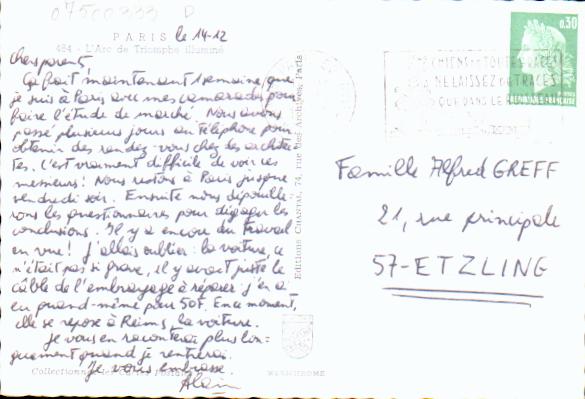 07500333 D
PARIS le 14-12
484 - L'Arc de Triomphe illuminé
Chers parents,
Ça fait maintenant 1 semaine que
je suis à Paris avec mes camarades pour
faire l'étude de marché. Nous avons
passé plusieurs jours au téléphone pour
obtenir des rendez-vous chez les architec-
tes. C'est vraiment difficile de voir ces
messieurs! Nous restons à Paris jusque
vendredi soir. Ensuite nous dépouille-
rons les questionnaires pour dégager les
conclusions. Il y a encore du travail
en vue! J'allais oublier: la voiture, ce
n'était pas si grave, il y avait juste le
câble de l'embrayage à réparer. J'en ai
eu quand-même pour 50F. En ce moment,
elle se repose à Reims, la voiture.
Je vous en raconterai plus lon-
guement quand je rentrerai.
Je vous embrasse.
Alain
Editions CHANTAL, 74, rue des Archives, Paris
0,30
CHIENS DE TOUTE RACE
NE LAISSEZ DE TRACES
QUE DANS LE
RÉPUBLIQUE FRANÇAISE
Famille Alfred GREFF
21, rue principale
57-ETZLING